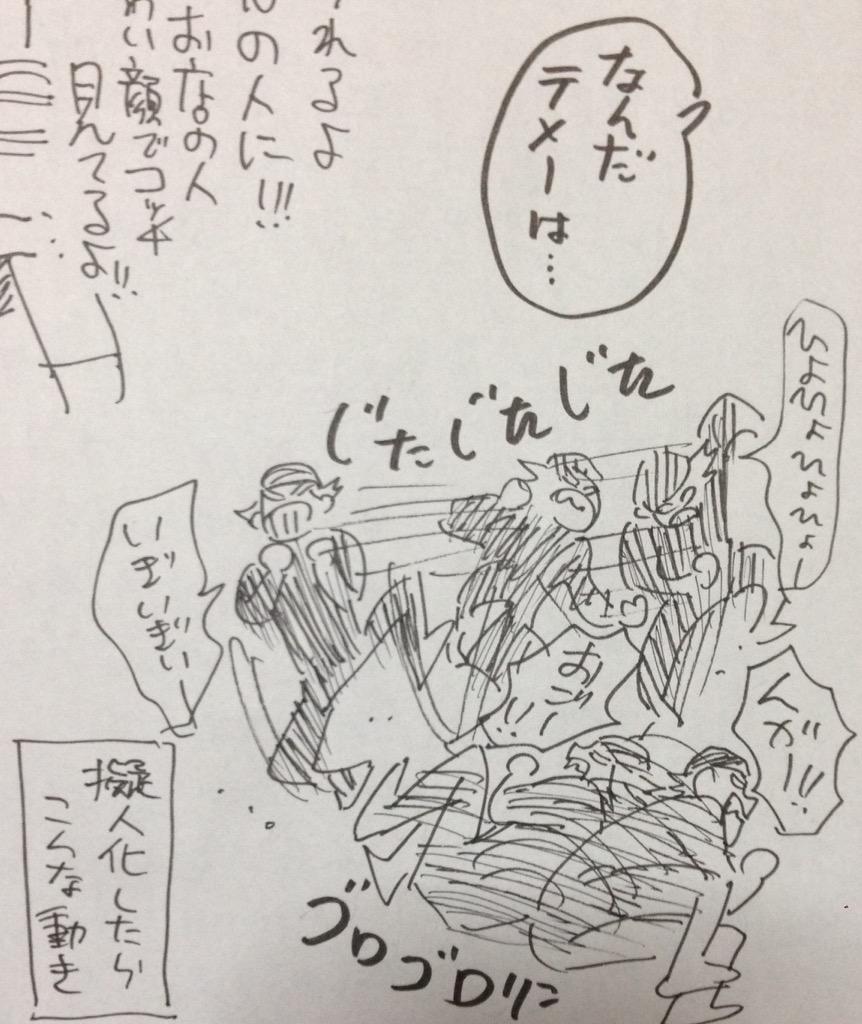 れるよ
の人に!!!
おなの人
い顔でコッチ
見てるよ!!
なんだ
テメーは…
じたじたじた
ひょひょひょひょー
いぎいぎぃー
おごぉ!!
んがー!!
ゴロゴロリン
擬人化したら
こんな動き